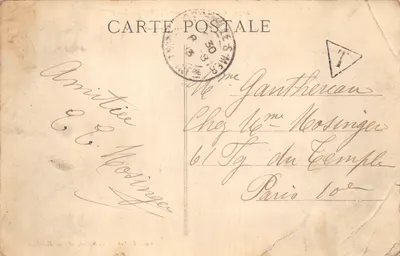 CARTE POSTALE
T
Amitiés
E. E. Mosinger
Mme Gauthereau
Chez Mme Mosinger
61 Fg du Temple
Paris 10e